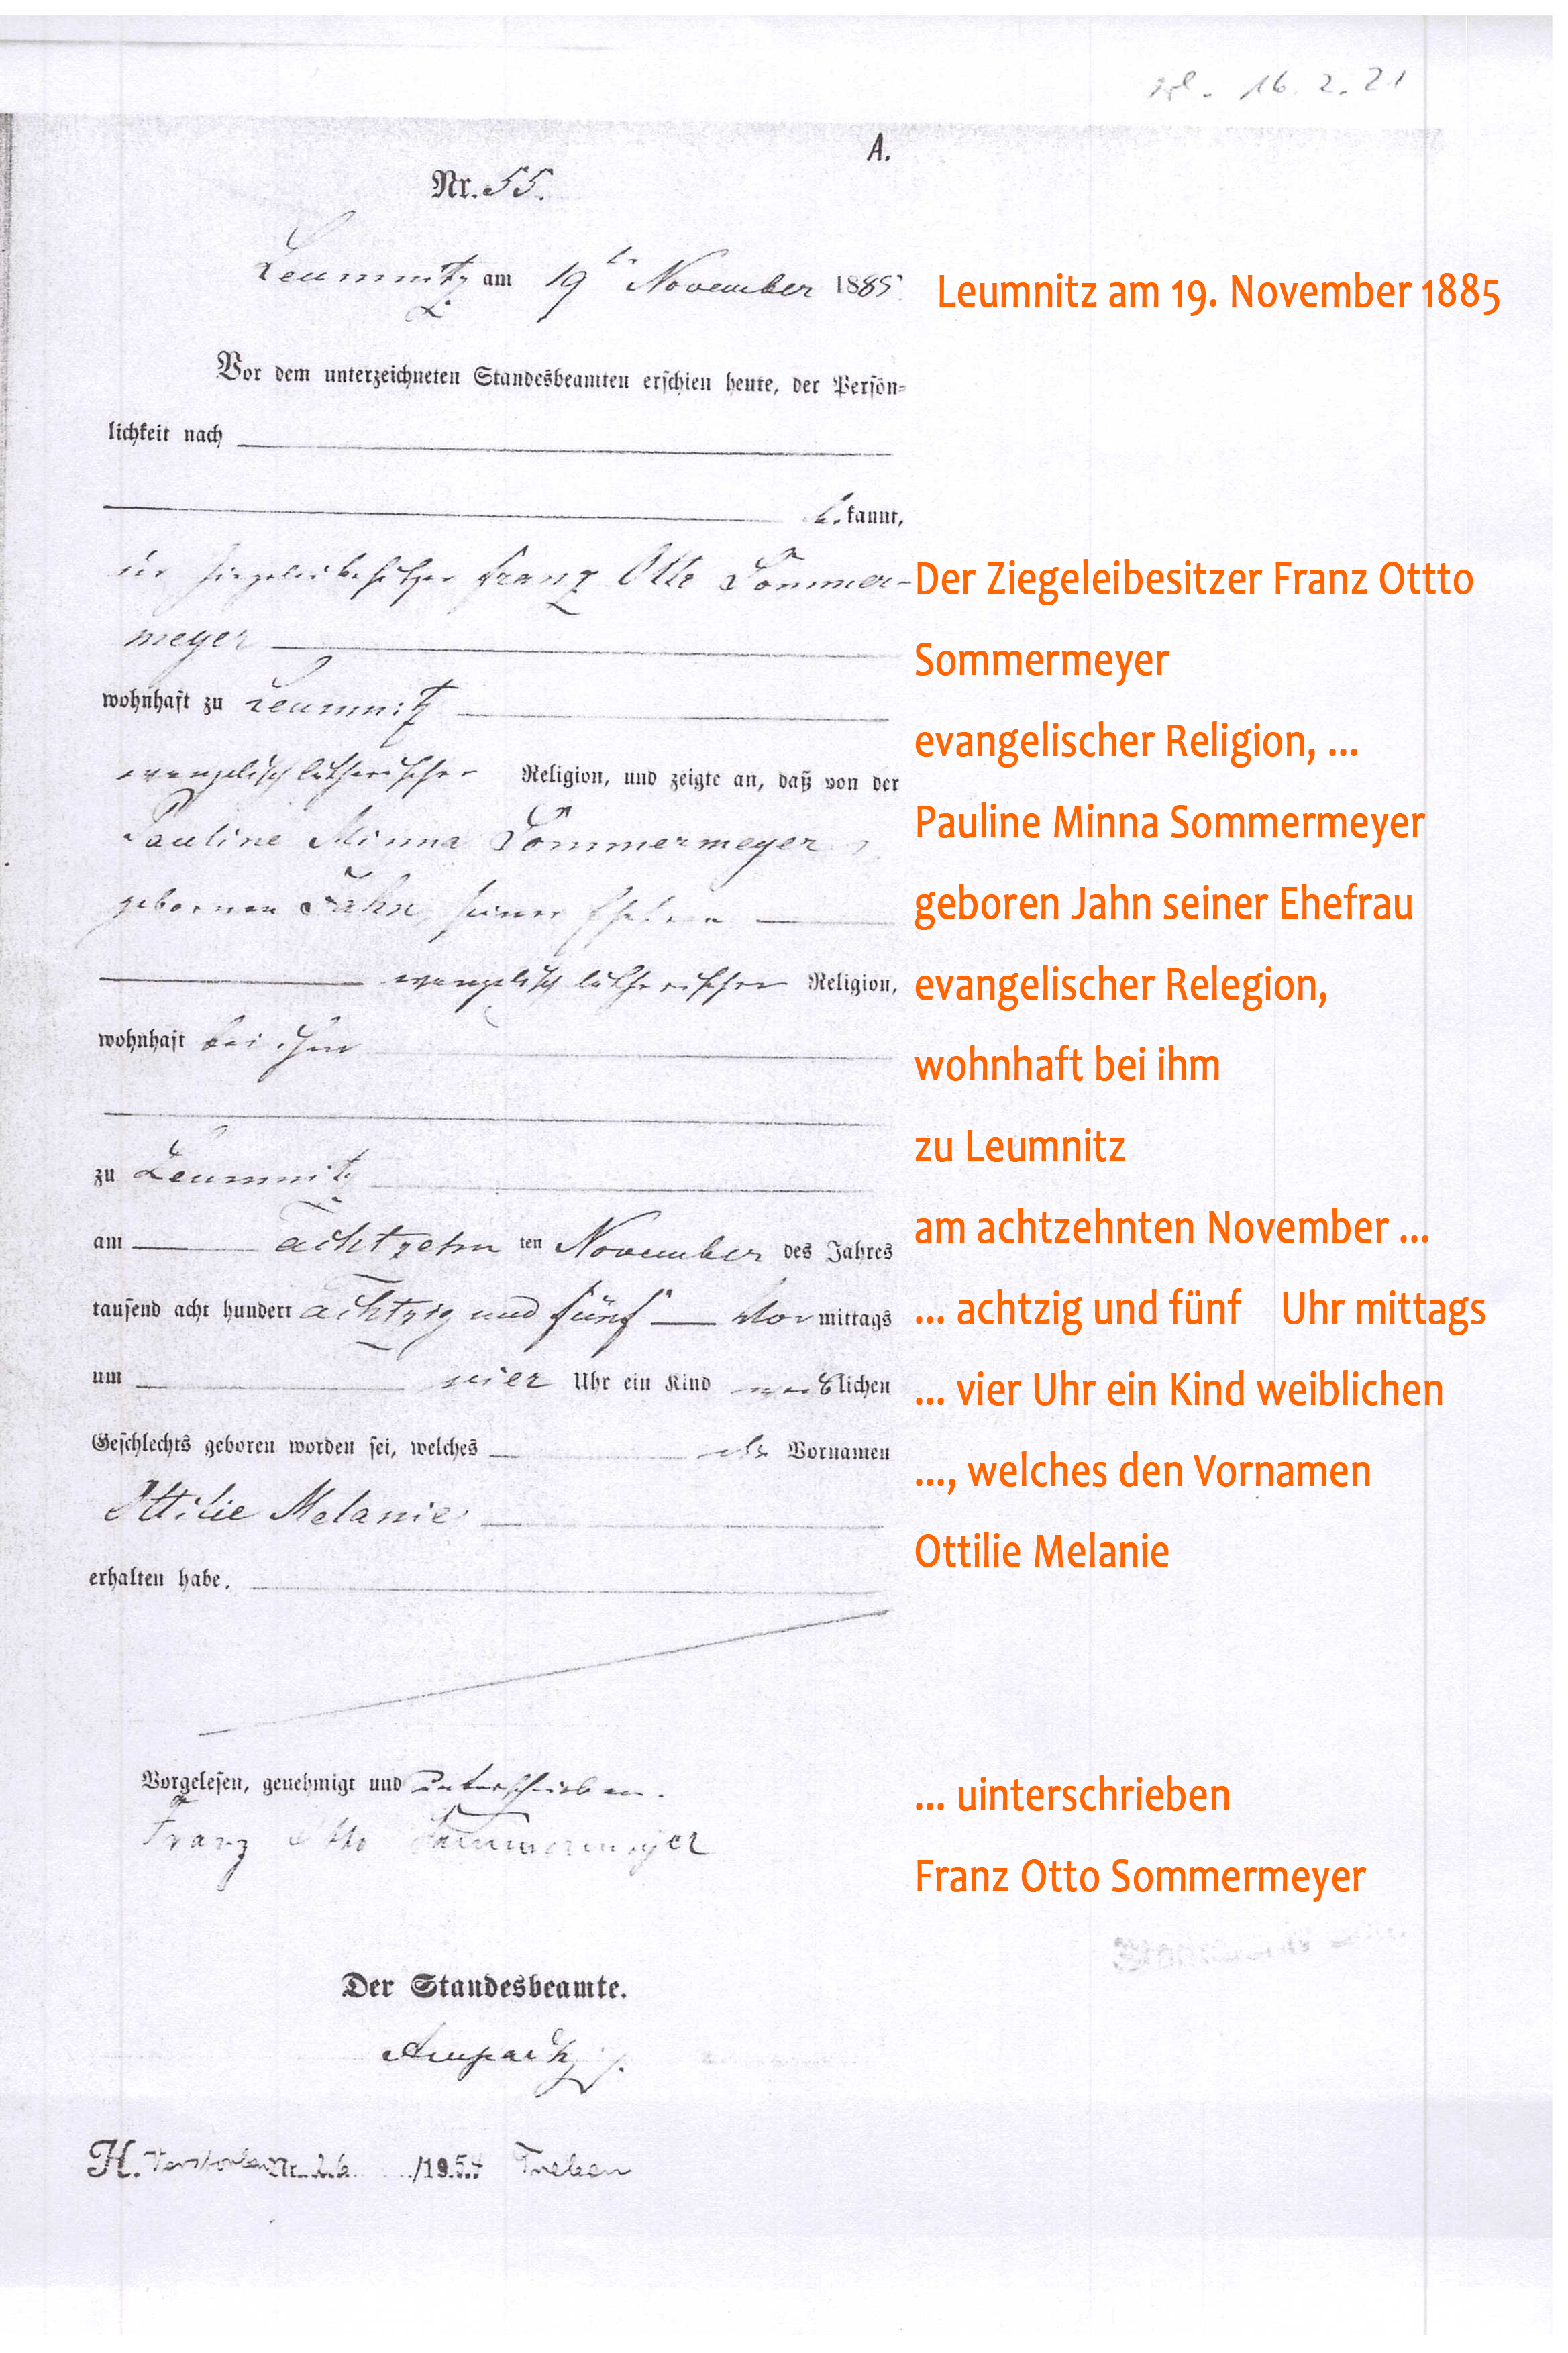 16. 2. 21
A.
Nr. 55.
Leumnitz am 19ten November 1885.
Leumnitz am 19. November 1885
Vor dem unterzeichneten Standesbeamten erschien heute, der Persön-
lichkeit nach
be kannt,
der Ziegeleibesitzer Franz Otto Sommer-
Der Ziegeleibesitzer Franz Ottto
meyer
Sommermeyer
wohnhaft zu Leumnitz
evangelischer Religion, ...
evangelisch lutherischer Religion, und zeigte an, daß von der
Pauline Minna Sommermeyer
Pauline Minna Sommermeyer
gebornen Jahn, seiner Ehefrau
geboren Jahn seiner Ehefrau
evangelisch lutherischer Religion,
evangelischer Relegion,
wohnhaft bei ihm
wohnhaft bei ihm
zu Leumnitz
zu Leumnitz
am achtzehn ten November des Jahres
am achtzehnten November ...
tausend acht hundert achtzig und fünf Vor mittags
... achtzig und fünf Uhr mittags
um vier Uhr ein Kind weiblichen
... vier Uhr ein Kind weiblichen
Geschlechts geboren worden sei, welches die Vornamen
..., welches den Vornamen
Ottilie Melanie
Ottilie Melanie
erhalten habe.
Vorgelesen, genehmigt und unterschrieben.
... uinterschrieben
Franz Otto Sommermeyer
Franz Otto Sommermeyer
Der Standesbeamte.
H. Verstorben Nr. 26 /1954 Treben